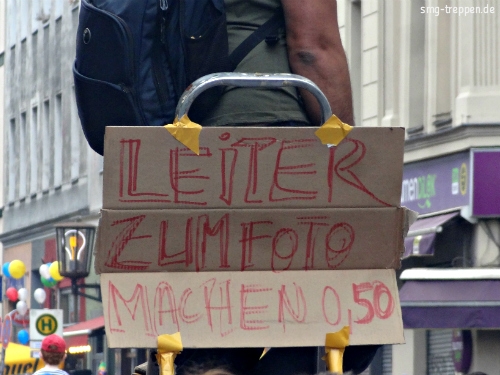 smg-treppen.de
LEITER
ZUM FOTO
MACHEN 0,50
H